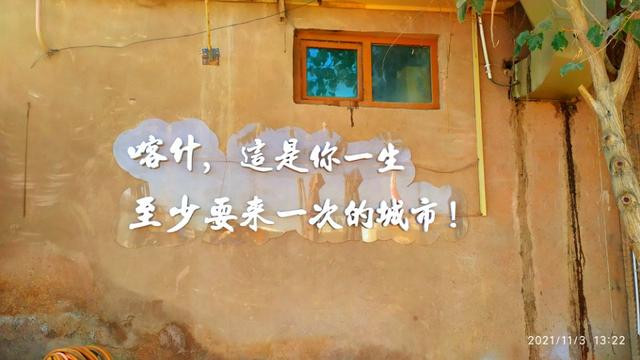 喀什，這是你一生
至少要来一次的城市！
2021/11/3 13:22